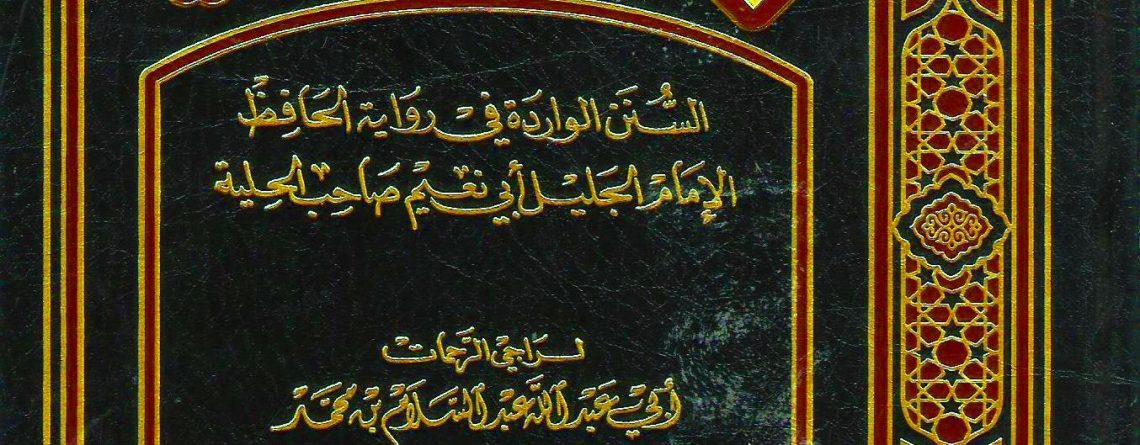 السُّنَن الواردة في رواية الحَافِظ
الإمَام الجَليل أبي نعيم صَاحِب الحِلية
لراجي الرَّحمات
أبي عَبد الله عَبد السَّلام بن محمَّد